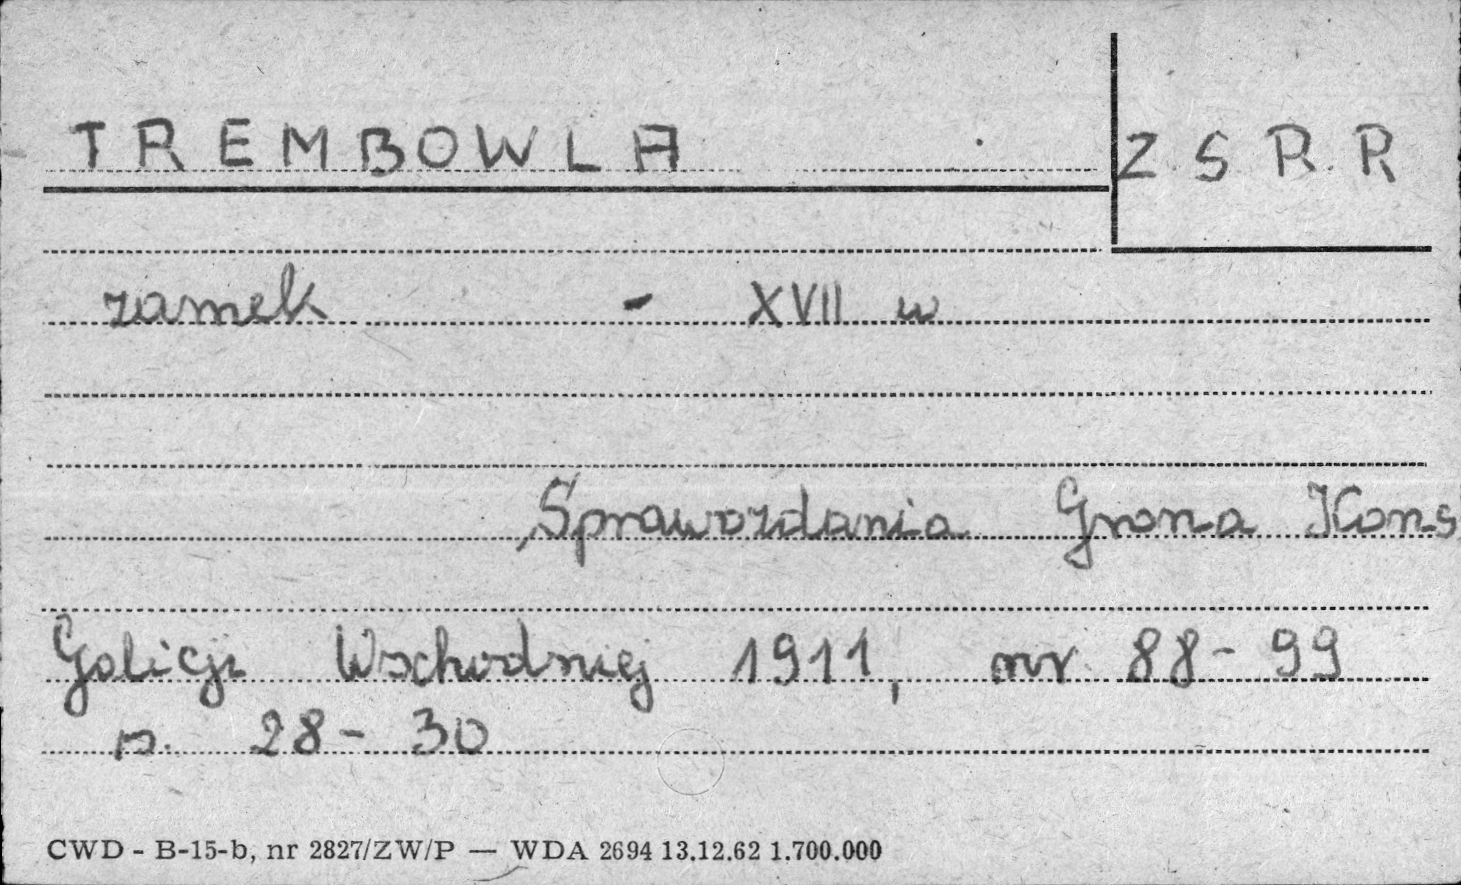 TREMBOWLA
ZSRR
zamek - XVII w
Sprawozdania Grona Kons
Galicji Wschodniej 1911, nr 88-99
s. 28-30
CWD - B-15-b, nr 2827/ZW/P — WDA 2694 13.12.62 1.700.000